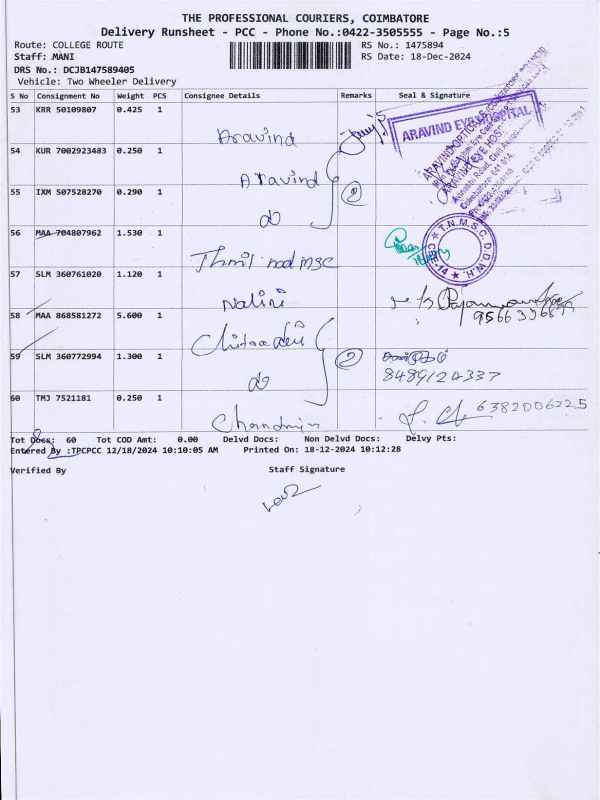 THE PROFESSIONAL COURIERS, COIMBATORE
Delivery Runsheet - PCC - Phone No.:0422-3505555 - Page No.:5
Route: COLLEGE ROUTE RS No.: 1475894
Staff: MANI RS Date: 18-Dec-2024
DRS No.: DCJB147589405
Vehicle: Two Wheeler Delivery
S No Consignment No Weight PCS Consignee Details Remarks Seal & Signature
53 KRR 50109807 0.425 1 Aravind
ARAVIND EYE HOSPITAL
54 KUR 7002923483 0.250 1 Aravind
2
55 IXM 507528270 0.290 1 do
56 MAA 704807962 1.530 1 Thmil nad msc
T.N.M.S.C. D.D.W.H.
CBE-14
57 SLM 360761020 1.120 1 Nalini
9566396899
58 MAA 868581272 5.600 1 Chitradevi
2
59 SLM 360772994 1.300 1 do 8489124337
60 TMJ 7521181 0.250 1 6382006225
Tot Docs: 60 Tot COD Amt: 0.00 Delvd Docs: Non Delvd Docs: Delvy Pts:
Entered By :TPCPCC 12/18/2024 10:10:05 AM Printed On: 18-12-2024 10:12:28
Verified By Staff Signature